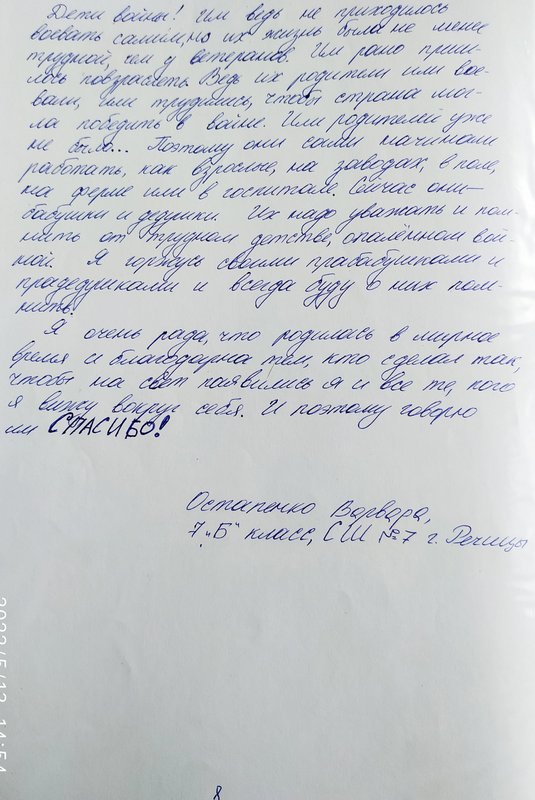 Дети войны! Им ведь не приходилось
воевать самим, но их жизнь была не менее
трудной, чем у ветеранов. Им рано приш-
лось повзрослеть. Ведь их родители или вое-
вали, или трудились, чтобы страна мог-
ла победить в войне. Или родителей уже
не было... Поэтому они сами начинали
работать, как взрослые, на заводах, в поле,
на ферме или в госпитале. Сейчас они —
бабушки и дедушки. Их надо уважать и пом-
нить от трудном детстве, опалённом вой-
ной. Я горжусь своими прабабушками и
прадедушками и всегда буду о них пом-
нить!
Я очень рада, что родилась в мирное
время и благодарна тем, кто сделал так,
чтобы на свет появились я и все те, кого
я вижу вокруг себя. И поэтому говорю
им СПАСИБО!
Остапенко Варвара,
7 „Б" класс, СШ №7 г. Речицы
2022/5/12 14:54
8